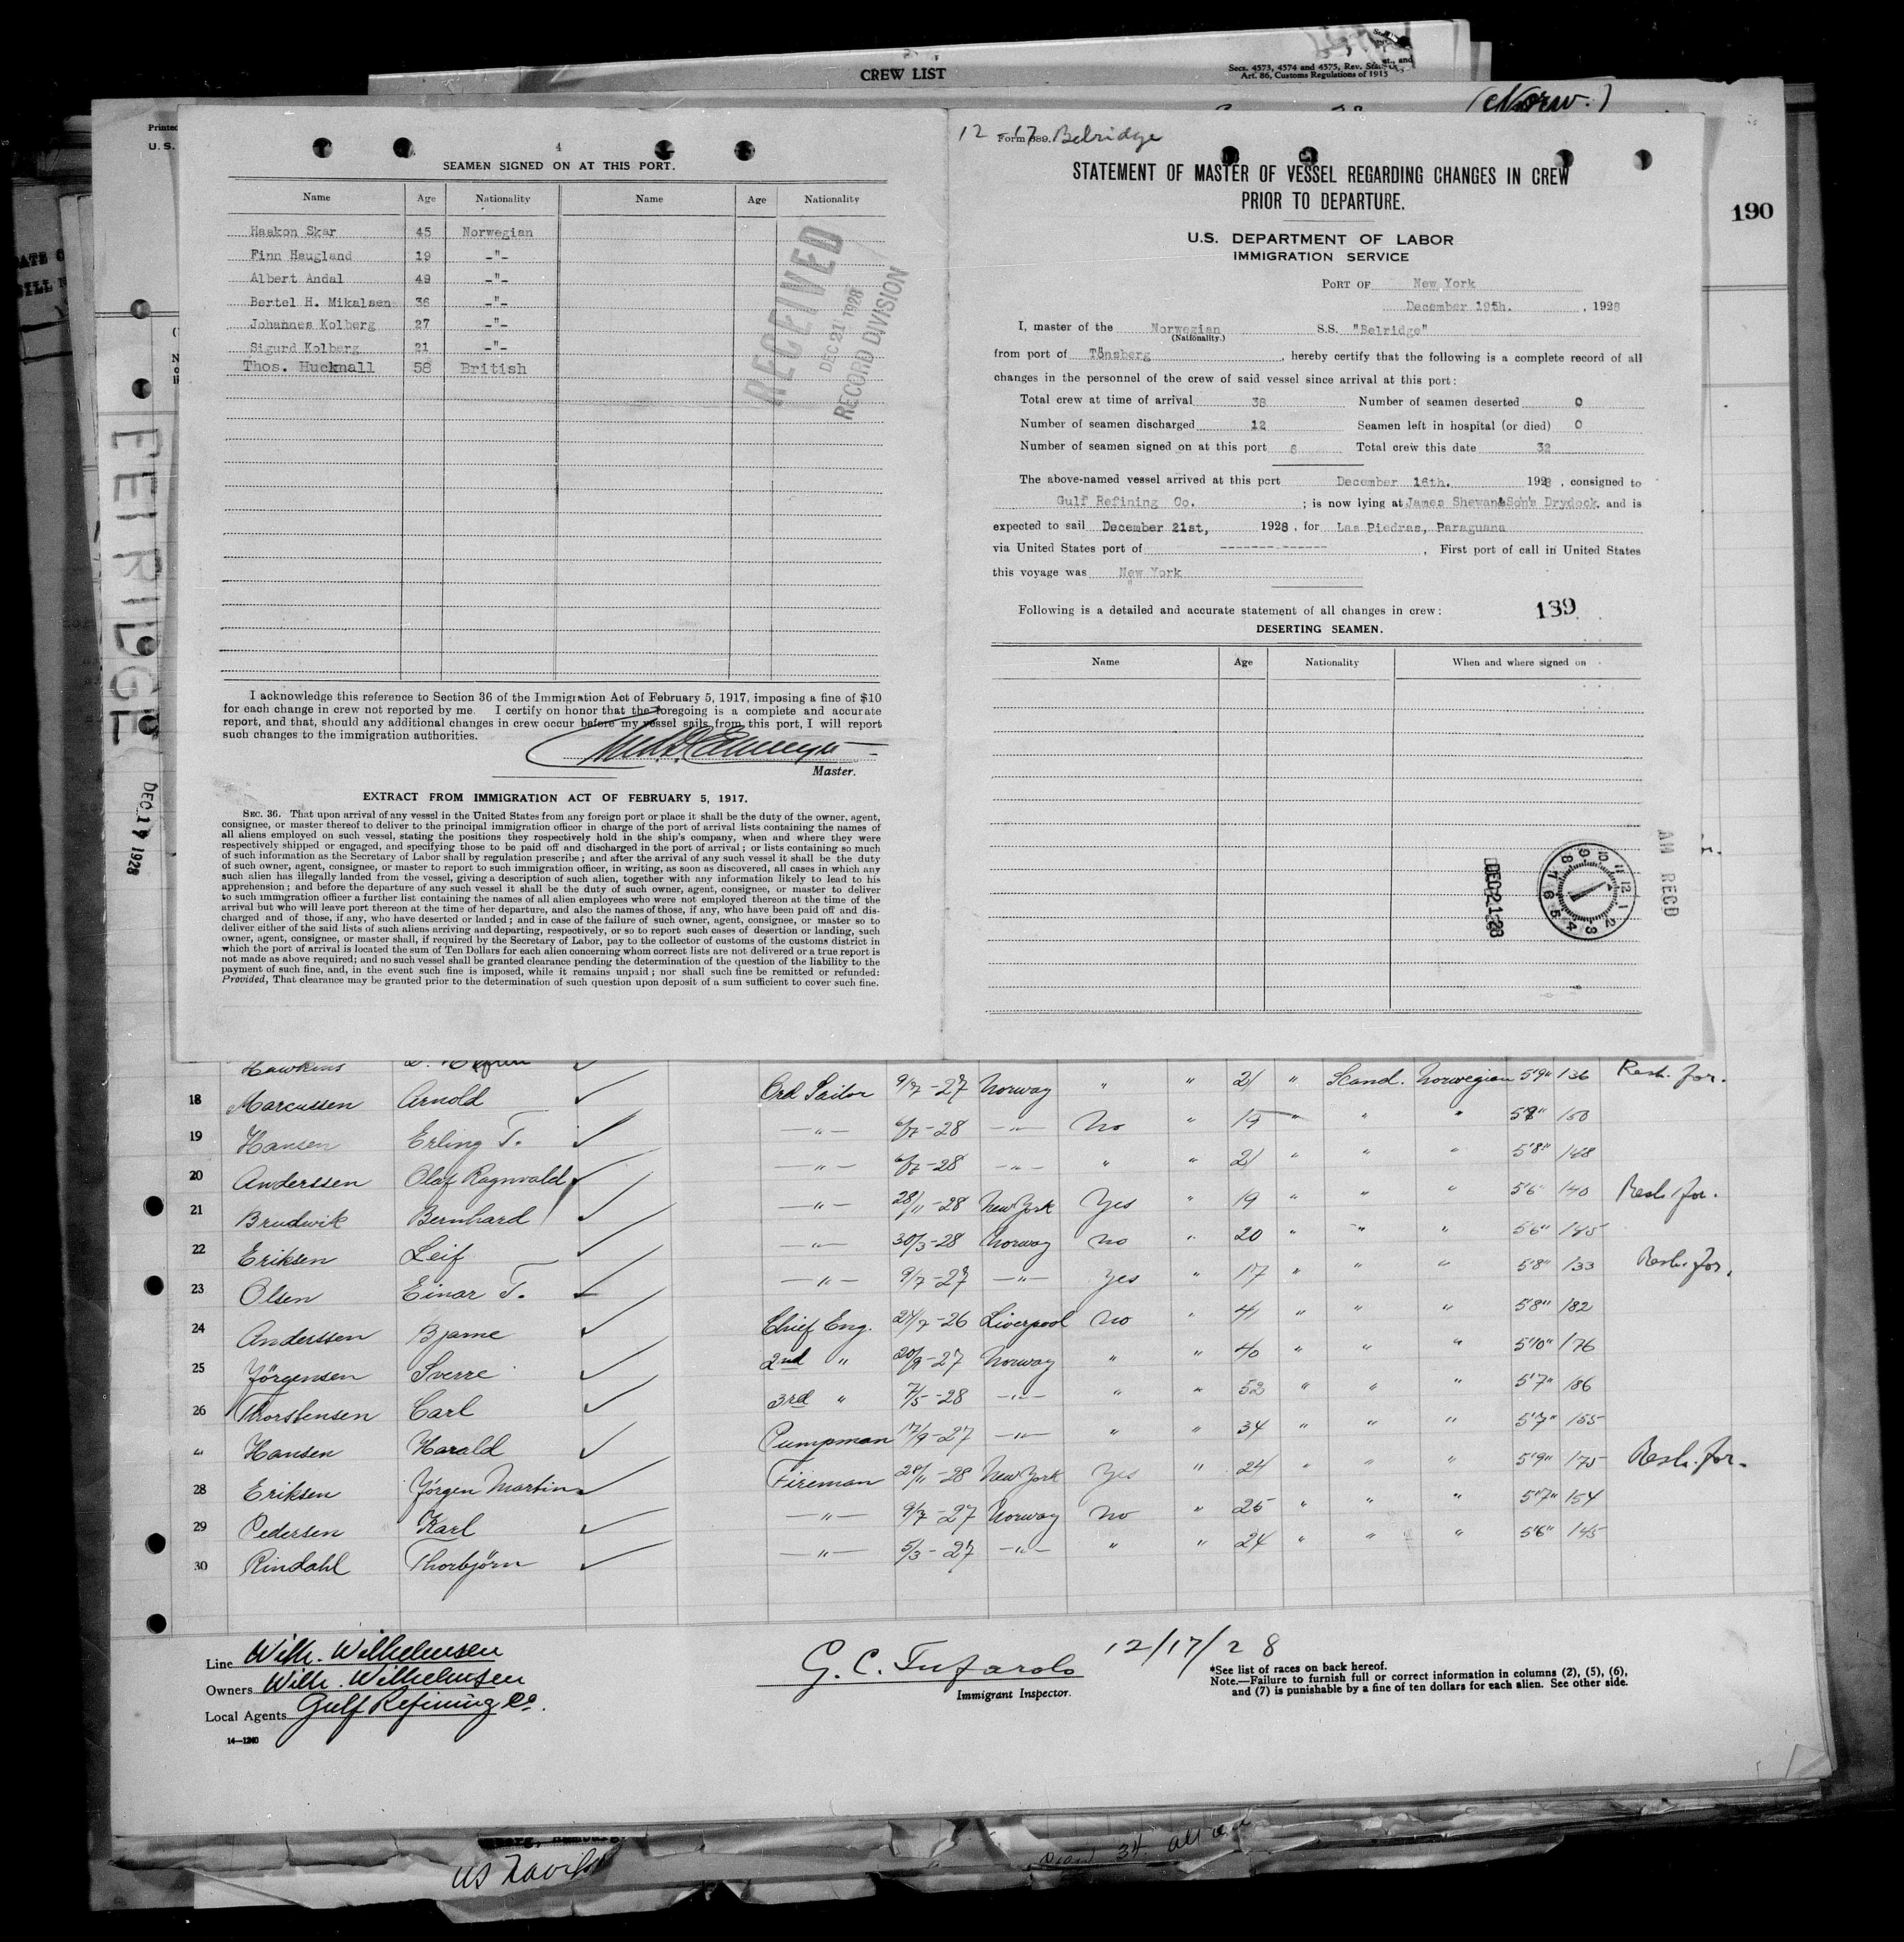 CREW LIST
Secs. 4573, 4574 and 4575, Rev. Stat., and
Art. 86, Customs Regulations of 1915
(Norw.)
190
Printed
U. S.
4
SEAMEN SIGNED ON AT THIS PORT.
Name Age Nationality Name Age Nationality
Haakon Skar 45 Norwegian
Finn Haugland 19 -"-
Albert Andal 49 -"-
Bertel H. Mikalsen 36 -"-
Johannes Kolberg 27 -"-
Sigurd Kolberg 21 -"-
Thos. Hucknall 58 British
RECEIVED
DEC 21 1928
RECORD DIVISION
I acknowledge this reference to Section 36 of the Immigration Act of February 5, 1917, imposing a fine of $10
for each change in crew not reported by me. I certify on honor that the foregoing is a complete and accurate
report, and that, should any additional changes in crew occur before my vessel sails from this port, I will report
such changes to the immigration authorities.
Master.
EXTRACT FROM IMMIGRATION ACT OF FEBRUARY 5, 1917.
SEC. 36. That upon arrival of any vessel in the United States from any foreign port or place it shall be the duty of the owner, agent,
consignee, or master thereof to deliver to the principal immigration officer in charge of the port of arrival lists containing the names of
all aliens employed on such vessel, stating the positions they respectively hold in the ship's company, when and where they were
respectively shipped or engaged, and specifying those to be paid off and discharged in the port of arrival; or lists containing so much
of such information as the Secretary of Labor shall by regulation prescribe; and after the arrival of any such vessel it shall be the duty
of such owner, agent, consignee, or master to report to such immigration officer, in writing, as soon as discovered, all cases in which any
such alien has illegally landed from the vessel, giving a description of such alien, together with any information likely to lead to his
apprehension; and before the departure of any such vessel it shall be the duty of such owner, agent, consignee, or master to deliver
to such immigration officer a further list containing the names of all alien employees who were not employed thereon at the time of the
arrival but who will leave port thereon at the time of her departure, and also the names of those, if any, who have been paid off and dis-
charged and of those, if any, who have deserted or landed; and in case of the failure of such owner, agent, consignee, or master so to
deliver either of the said lists of such aliens arriving and departing, respectively, or so to report such cases of desertion or landing, such
owner, agent, consignee, or master shall, if required by the Secretary of Labor, pay to the collector of customs of the customs district in
which the port of arrival is located the sum of Ten Dollars for each alien concerning whom correct lists are not delivered or a true report is
not made as above required; and no such vessel shall be granted clearance pending the determination of the question of the liability to the
payment of such fine, and, in the event such fine is imposed, while it remains unpaid; nor shall such fine be remitted or refunded:
Provided, That clearance may be granted prior to the determination of such question upon deposit of a sum sufficient to cover such fine.
DEC 19 1928
12-17 Belridge
Form 689.
STATEMENT OF MASTER OF VESSEL REGARDING CHANGES IN CREW
PRIOR TO DEPARTURE.
U.S. DEPARTMENT OF LABOR
IMMIGRATION SERVICE
PORT OF New York
December 19th. , 1928
I, master of the Norwegian S.S. "Belridge"
(Nationality.)
from port of Tönsberg , hereby certify that the following is a complete record of all
changes in the personnel of the crew of said vessel since arrival at this port:
Total crew at time of arrival 38 Number of seamen deserted 0
Number of seamen discharged 12 Seamen left in hospital (or died) 0
Number of seamen signed on at this port 6 Total crew this date 32
The above-named vessel arrived at this port December 16th. 1928, consigned to
Gulf Refining Co. ; is now lying at James Shewan & Son's Drydock, and is
expected to sail December 21st, 1928, for Las Piedras, Paraguana
via United States port of ------------- , First port of call in United States
this voyage was New York
Following is a detailed and accurate statement of all changes in crew: 189
DESERTING SEAMEN.
Name Age Nationality When and where signed on
DEC 21 28
AM RECD
Hawkins
18 Marcussen Arnold Ord Sailor 9/7-27 Norway " " 21 " Scand. Norwegian 5'9" 136 Resh. for.
19 Hansen Erling T. -"- 6/7-28 -"- No " 19 " " " 5'8" 150
20 Anderssen Olaf Ragnvald -"- 6/7-28 -"- " " 21 " " " 5'8" 148
21 Brudwik Bernhard -"- 28/11-28 New York Yes " 19 " " " 5'6" 140 Resh. for.
22 Eriksen Leif -"- 30/3-28 Norway No " 20 " " " 5'6" 145
23 Olsen Einar T. -"- 9/7-27 -"- Yes " 17 " " " 5'8" 133 Resh. for.
24 Anderssen Bjarne Chief Eng. 24/7-26 Liverpool No " 41 " " " 5'8" 182
25 Jörgensen Sverre 2nd " 20/9-27 Norway " " 40 " " " 5'10" 176
26 Thorstensen Carl 3rd " 7/5-28 -"- " " 52 " " " 5'7" 186
Hansen Harald Pumpman 17/9-27 -"- " " 34 " " " 5'7" 155
28 Eriksen Jörgen Martin Fireman 28/11-28 New York Yes " 24 " " " 5'9" 175 Resh. for.
29 Pedersen Karl -"- 9/7-27 Norway No " 25 " " " 5'7" 154
30 Rindahl Thorbjörn -"- 5/3-27 -"- " " 24 " " " 5'6" 145
Line Wilh. Wilhelmsen
Owners Wilh. Wilhelmsen
Local Agents Gulf Refining Co.
14-1240
G. C. Tufarolo 12/17/28
Immigrant Inspector.
*See list of races on back hereof.
Note.—Failure to furnish full or correct information in columns (2), (5), (6),
and (7) is punishable by a fine of ten dollars for each alien. See other side.